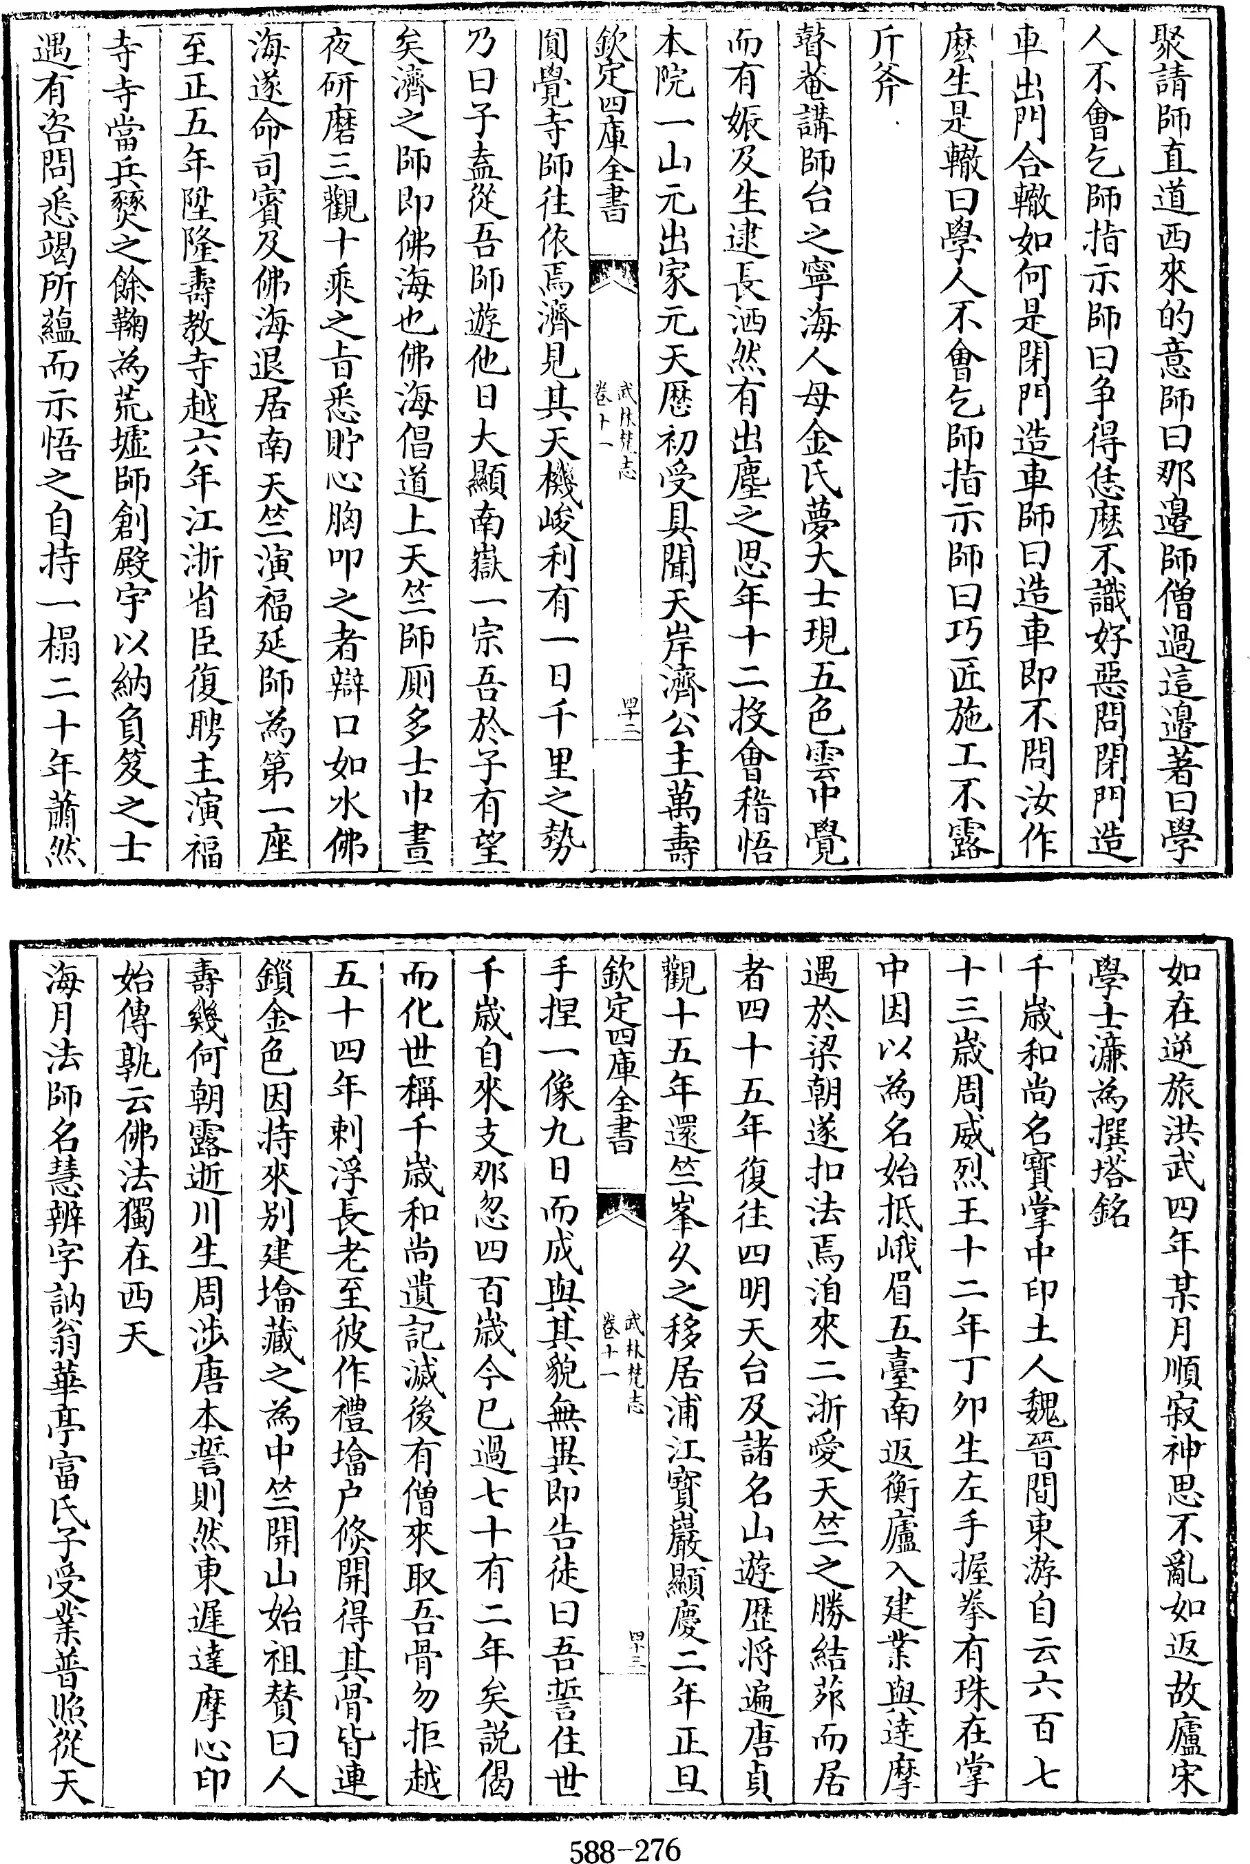 聚請師直道西來的意師曰那邉師僧過這邉著曰學
人不會乞師指示師曰争得恁麽不識好惡問閉門造
車出門合轍如何是閉門造車師曰造車即不問汝作
麽生是轍曰學人不會乞師指示師曰巧匠施工不露
斤斧
瞽菴講師台之寧海人母金氏夢大士現五色雲中覺
而有娠及生逮長洒然有出塵之思年十二投會稽悟
本院一山元出家元天厯初受具聞天岸濟公主萬壽
欽定四庫全書
武林梵志
卷十一
四十二
圓覺寺師往依焉濟見其天機峻利有一日千里之勢
乃曰子盍從吾師遊他日大顯南嶽一宗吾於子有望
矣濟之師即佛海也佛海倡道上天竺師厠多士中晝
夜研磨三觀十乘之㫖悉貯心胸叩之者辯口如水佛
海遂命司賓及佛海退居南天竺演福延師為第一座
至正五年陞隆壽教寺越六年江浙省臣復聘主演福
寺寺當兵燹之餘鞠為荒墟師創殿宇以納負笈之士
遇有咨問悉竭所蘊而示悟之自持一榻二十年蕭然
如在逆旅洪武四年某月順寂神思不亂如返故廬宋
學士濂為撰塔銘
千歳和尚名寳掌中印土人魏晉間東游自云六百七
十三歳周威烈王十二年丁卯生左手握拳有珠在掌
中因以為名始抵峨眉五臺南返衡廬入建業與達摩
遇於梁朝遂扣法焉洎來二浙愛天竺之勝結茆而居
者四十五年復往四明天台及諸名山遊歴將遍唐貞
觀十五年還竺峯久之移居浦江寳巖顯慶二年正旦
欽定四庫全書
武林梵志
卷十一
四十三
手捏一像九日而成與其貌無異即告徒曰吾誓住世
千歳自來支那忽四百歳今已過七十有二年矣説偈
而化世稱千歳和尚遺記滅後有僧來取吾骨勿拒越
五十四年剌浮長老至彼作禮墖户倐開得其骨皆連
鎖金色因持來別建墖藏之為中竺開山始祖賛曰人
壽幾何朝露逝川生周涉唐本誓則然東遲達摩心印
始傳孰云佛法獨在西天
海月法師名慧辨字訥翁華亭富氏子受業普照從天
588-276